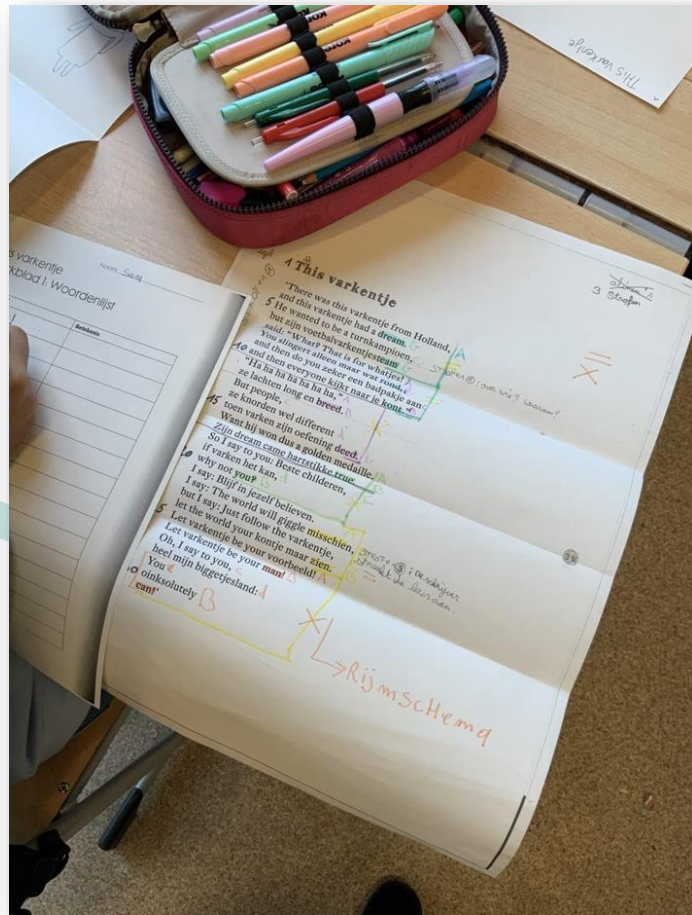 THIS Varkentje
s varkentje
Naam: Sara
kblad 1: Woordenlijst
Betekenis
3 Strofen
1 This varkentje
'There was this varkentje from Holland,
and this varkentje had a dream.
5 He wanted to be a turnkampioen,
but zijn voetbalvarkentjesteam
said: "What? That is for whatjes!
You slingert alleen maar wat rond,
and then do you zeker een badpakje aan
10 and then everyone kijkt naar je kont."
"Ha ha ha ha ha ha ha,"
ze lachten long en breed.
But people,
ze knorden wel different
15 toen varken zijn oefening deed.
Want hij won dus a golden medaille.
Zijn dream came hartstikke true.
So I say to you: Beste childeren,
if varken het kan,
20 why not you?
I say: Blijf in jezelf believen.
I say: The world will giggle misschien,
but I say: Just follow the varkentje,
let the world your kontje maar zien.
5 Let varkentje be your voorbeeld!
Let varkentje be your man!
Oh, I say to you,
heel mijn biggetjesland:
You
oinksolutely B
can!'
Rijmschema